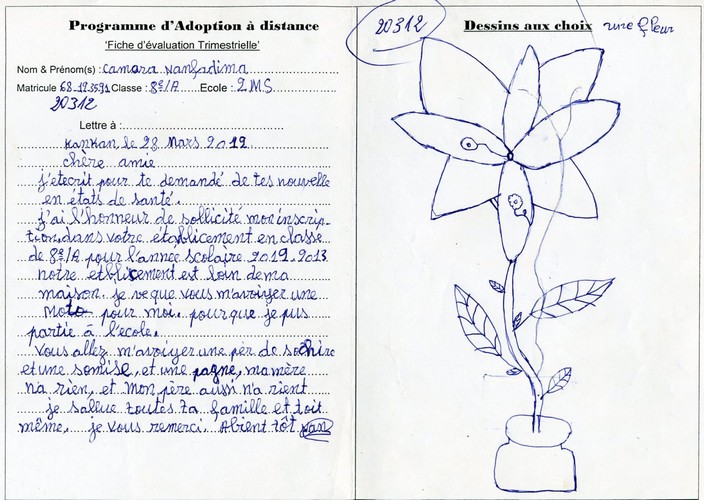 Programme d'Adoption à distance
'Fiche d'évaluation Trimestrielle'
Nom & Prénom(s) : Camara Nanfadima
Matricule : 68.193591 Classe : 8e/A Ecole : 2MS
20312
Lettre à :
Kankan le 28 Mars 2019
chère amie
j'etecrit pour te demandé de tes nouvelle
en états de santé.
j'ai l'honneur de sollicité mon inscrip-
tion dans votre établicement en classe
de 8e/A pour l'année scolaire 2019.2013
notre etblicement est loin de ma
maison. je ve que vous m'avoiyer une
Moto pour moi. pour que je pus
partie à l'ecole.
Vous allez m'avoiyer une pèr de sochire
et une somise, et une pagne, ma mère
n'a rien, et Mon père aussi n'a rient
je sallue toutes ta famille et toit
même. je vous remerci. Abient tôt
20312
Dessins aux choix une fleur